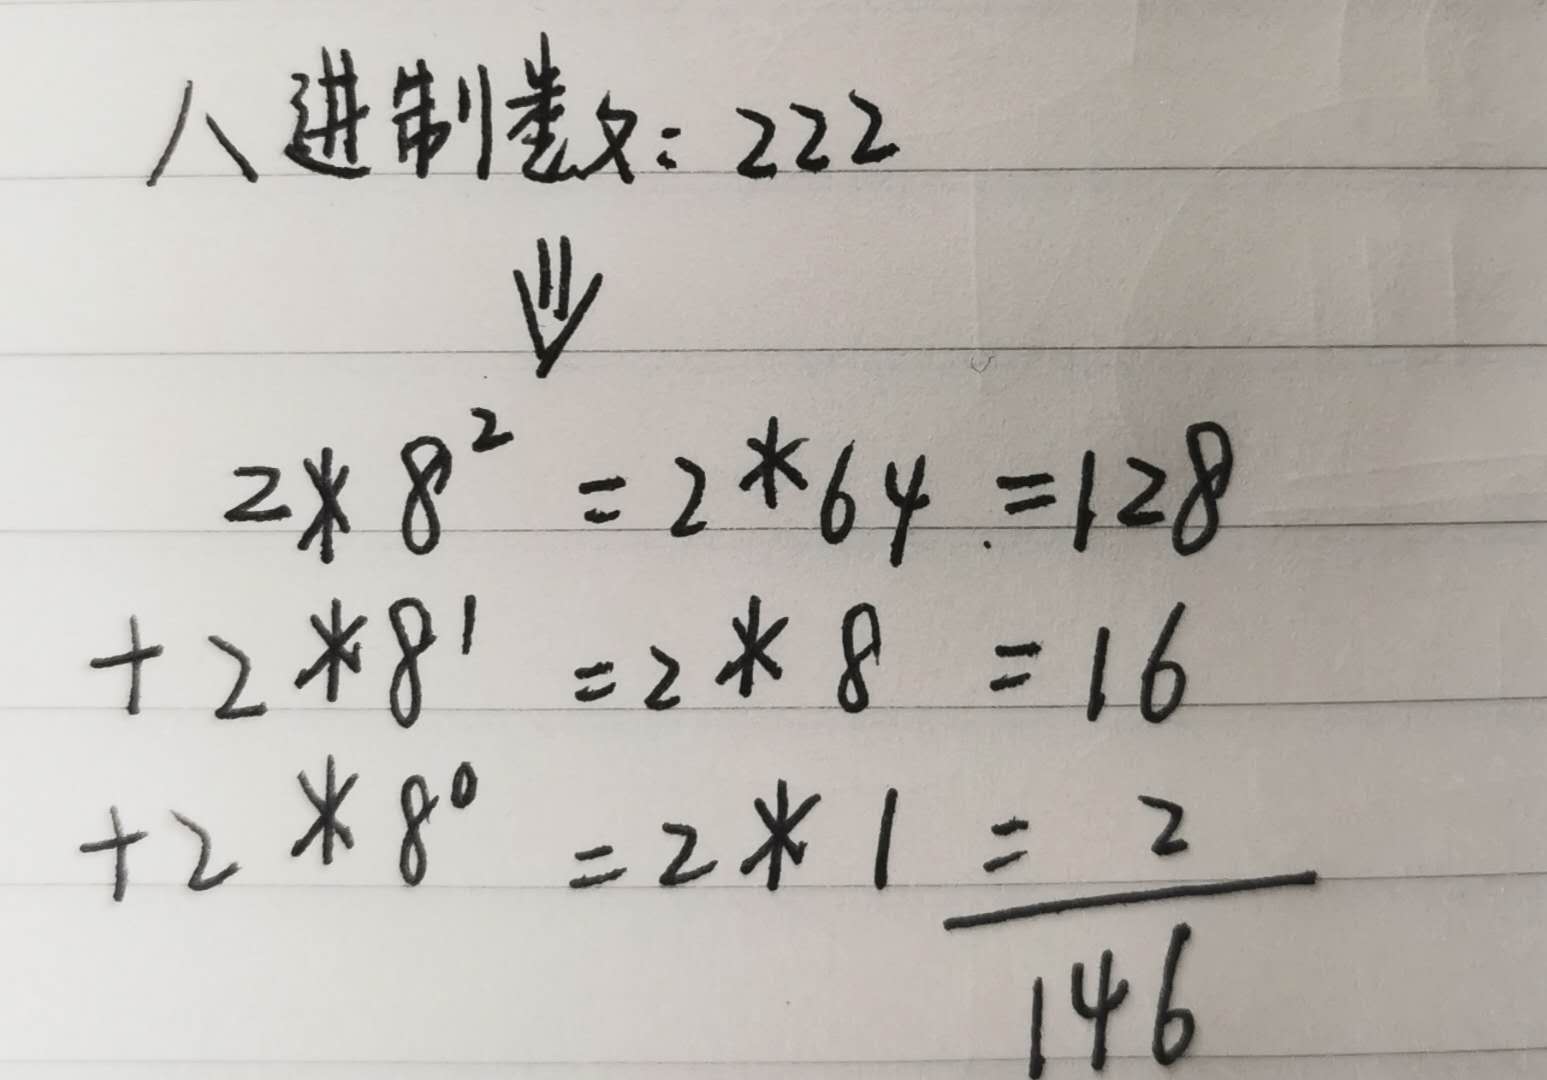 八进制数: 222
⇓
2*8² =2*64 =128
+2*8¹ =2*8 =16
+2*8⁰ =2*1 = 2
146